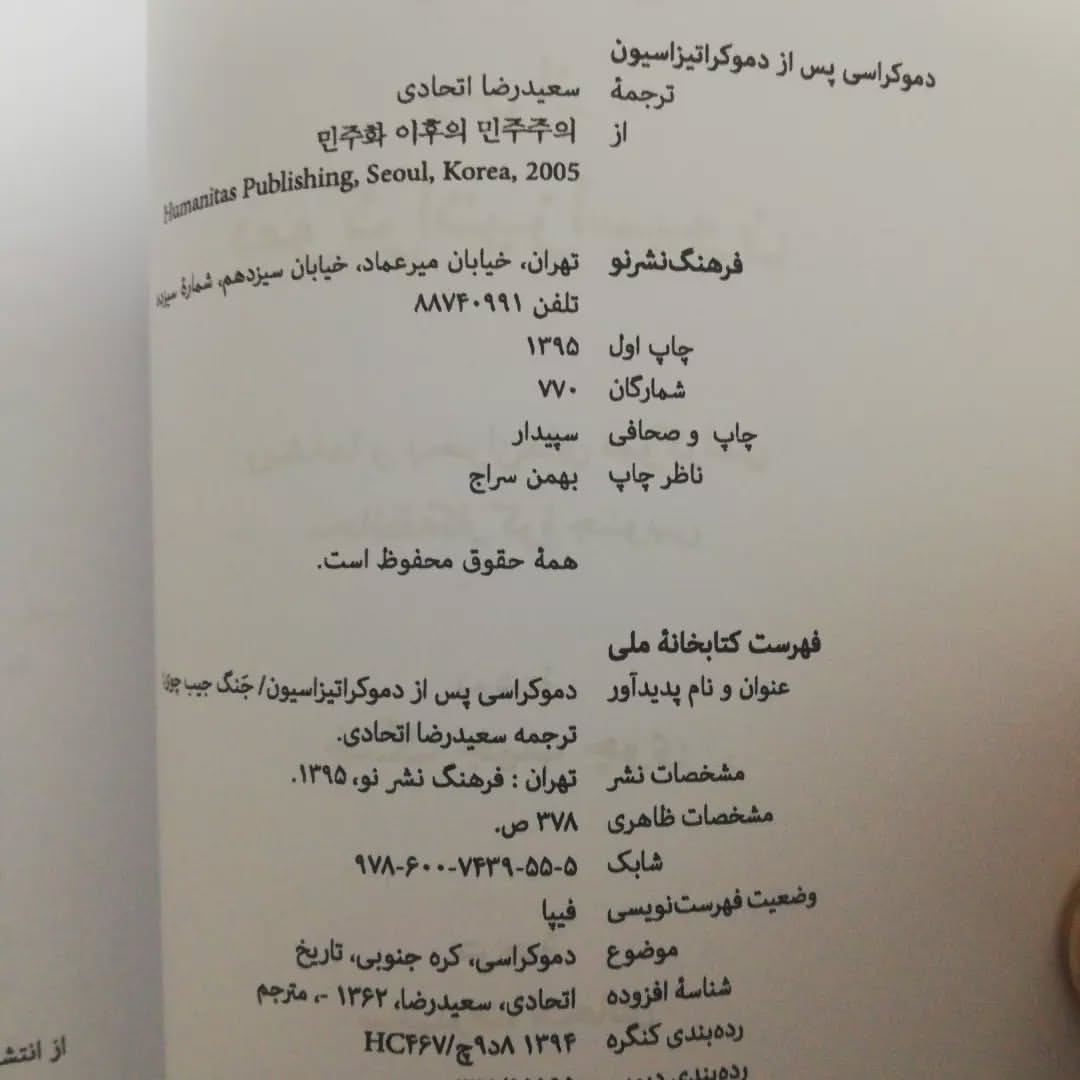 دموکراسی پس از دموکراتیزاسیون
ترجمهٔ سعیدرضا اتحادی
از 민주화 이후의 민주주의
Humanitas Publishing, Seoul, Korea, 2005
فرهنگ‌نشرنو تهران، خیابان میرعماد، خیابان سیزدهم، شمارهٔ
تلفن ۸۸۷۴۰۹۹۱
چاپ اول ۱۳۹۵
شمارگان ۷۷۰
چاپ و صحافی سپیدار
ناظر چاپ بهمن سراج
همهٔ حقوق محفوظ است.
فهرست کتابخانهٔ ملی
عنوان و نام پدیدآور دموکراسی پس از دموکراتیزاسیون/ جَنگ جیب
ترجمه سعیدرضا اتحادی.
مشخصات نشر تهران : فرهنگ نشر نو، ۱۳۹۵.
مشخصات ظاهری ۳۷۸ ص.
شابک ۹۷۸-۶۰۰-۷۴۳۹-۵۵-۵
وضعیت فهرست‌نویسی فیپا
موضوع دموکراسی، کره جنوبی، تاریخ
شناسهٔ افزوده اتحادی، سعیدرضا، ۱۳۶۲ -، مترجم
رده‌بندی کنگره ۱۳۹۴ ۸د۹چ/HC۴۶۷
رده‌بندی
از